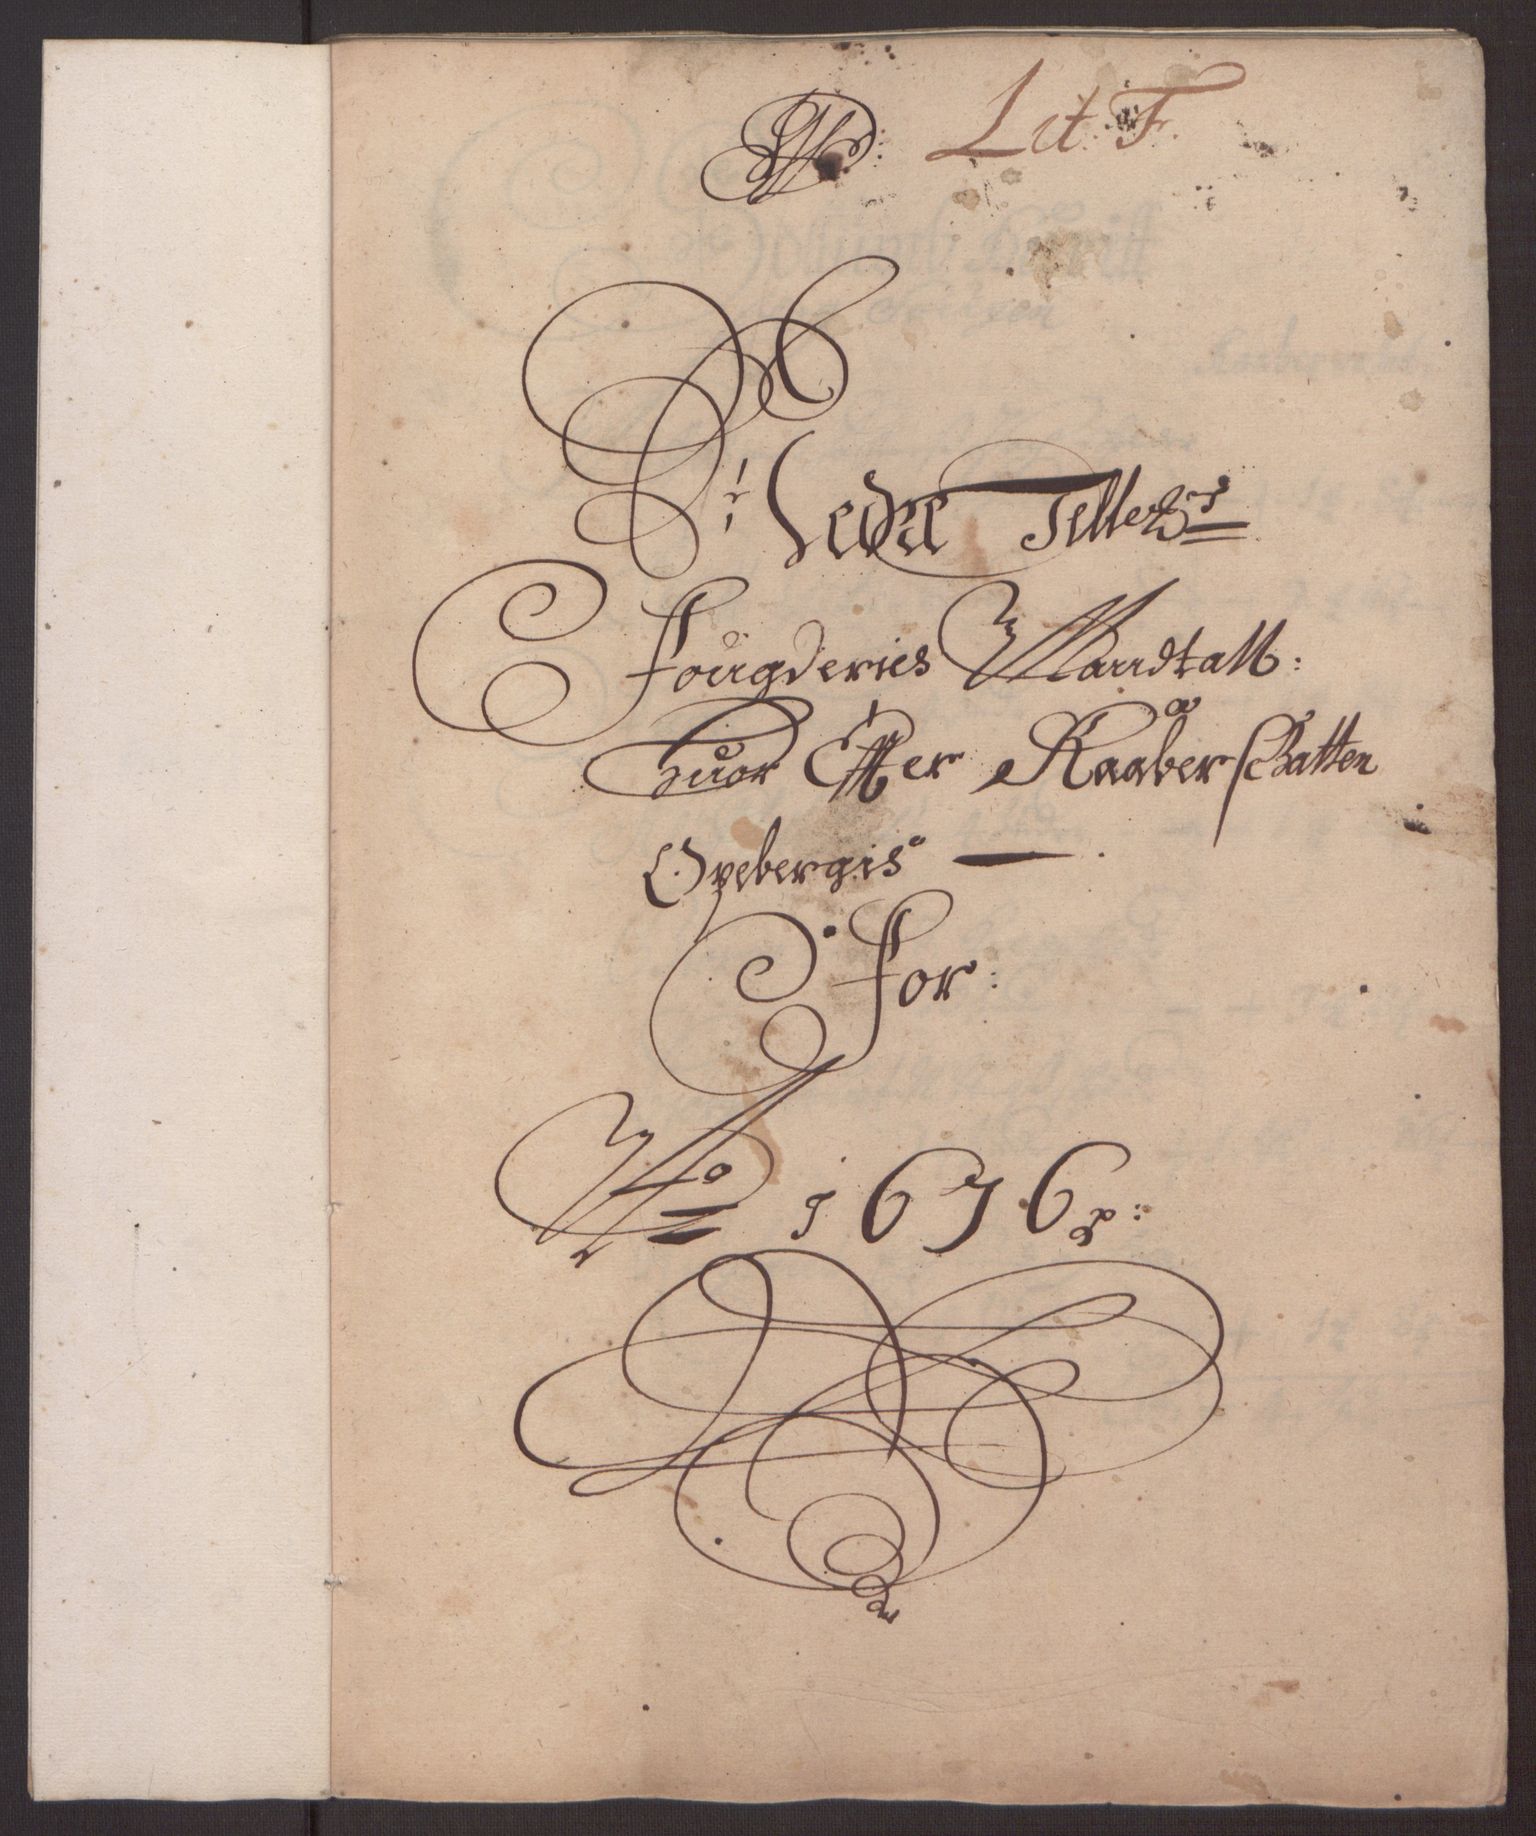 Lit F.
Nedre Tellem:
Fougderies Mandtall:
Huor Effter Kaaberschatten
Opebergis
For:
A° 1676